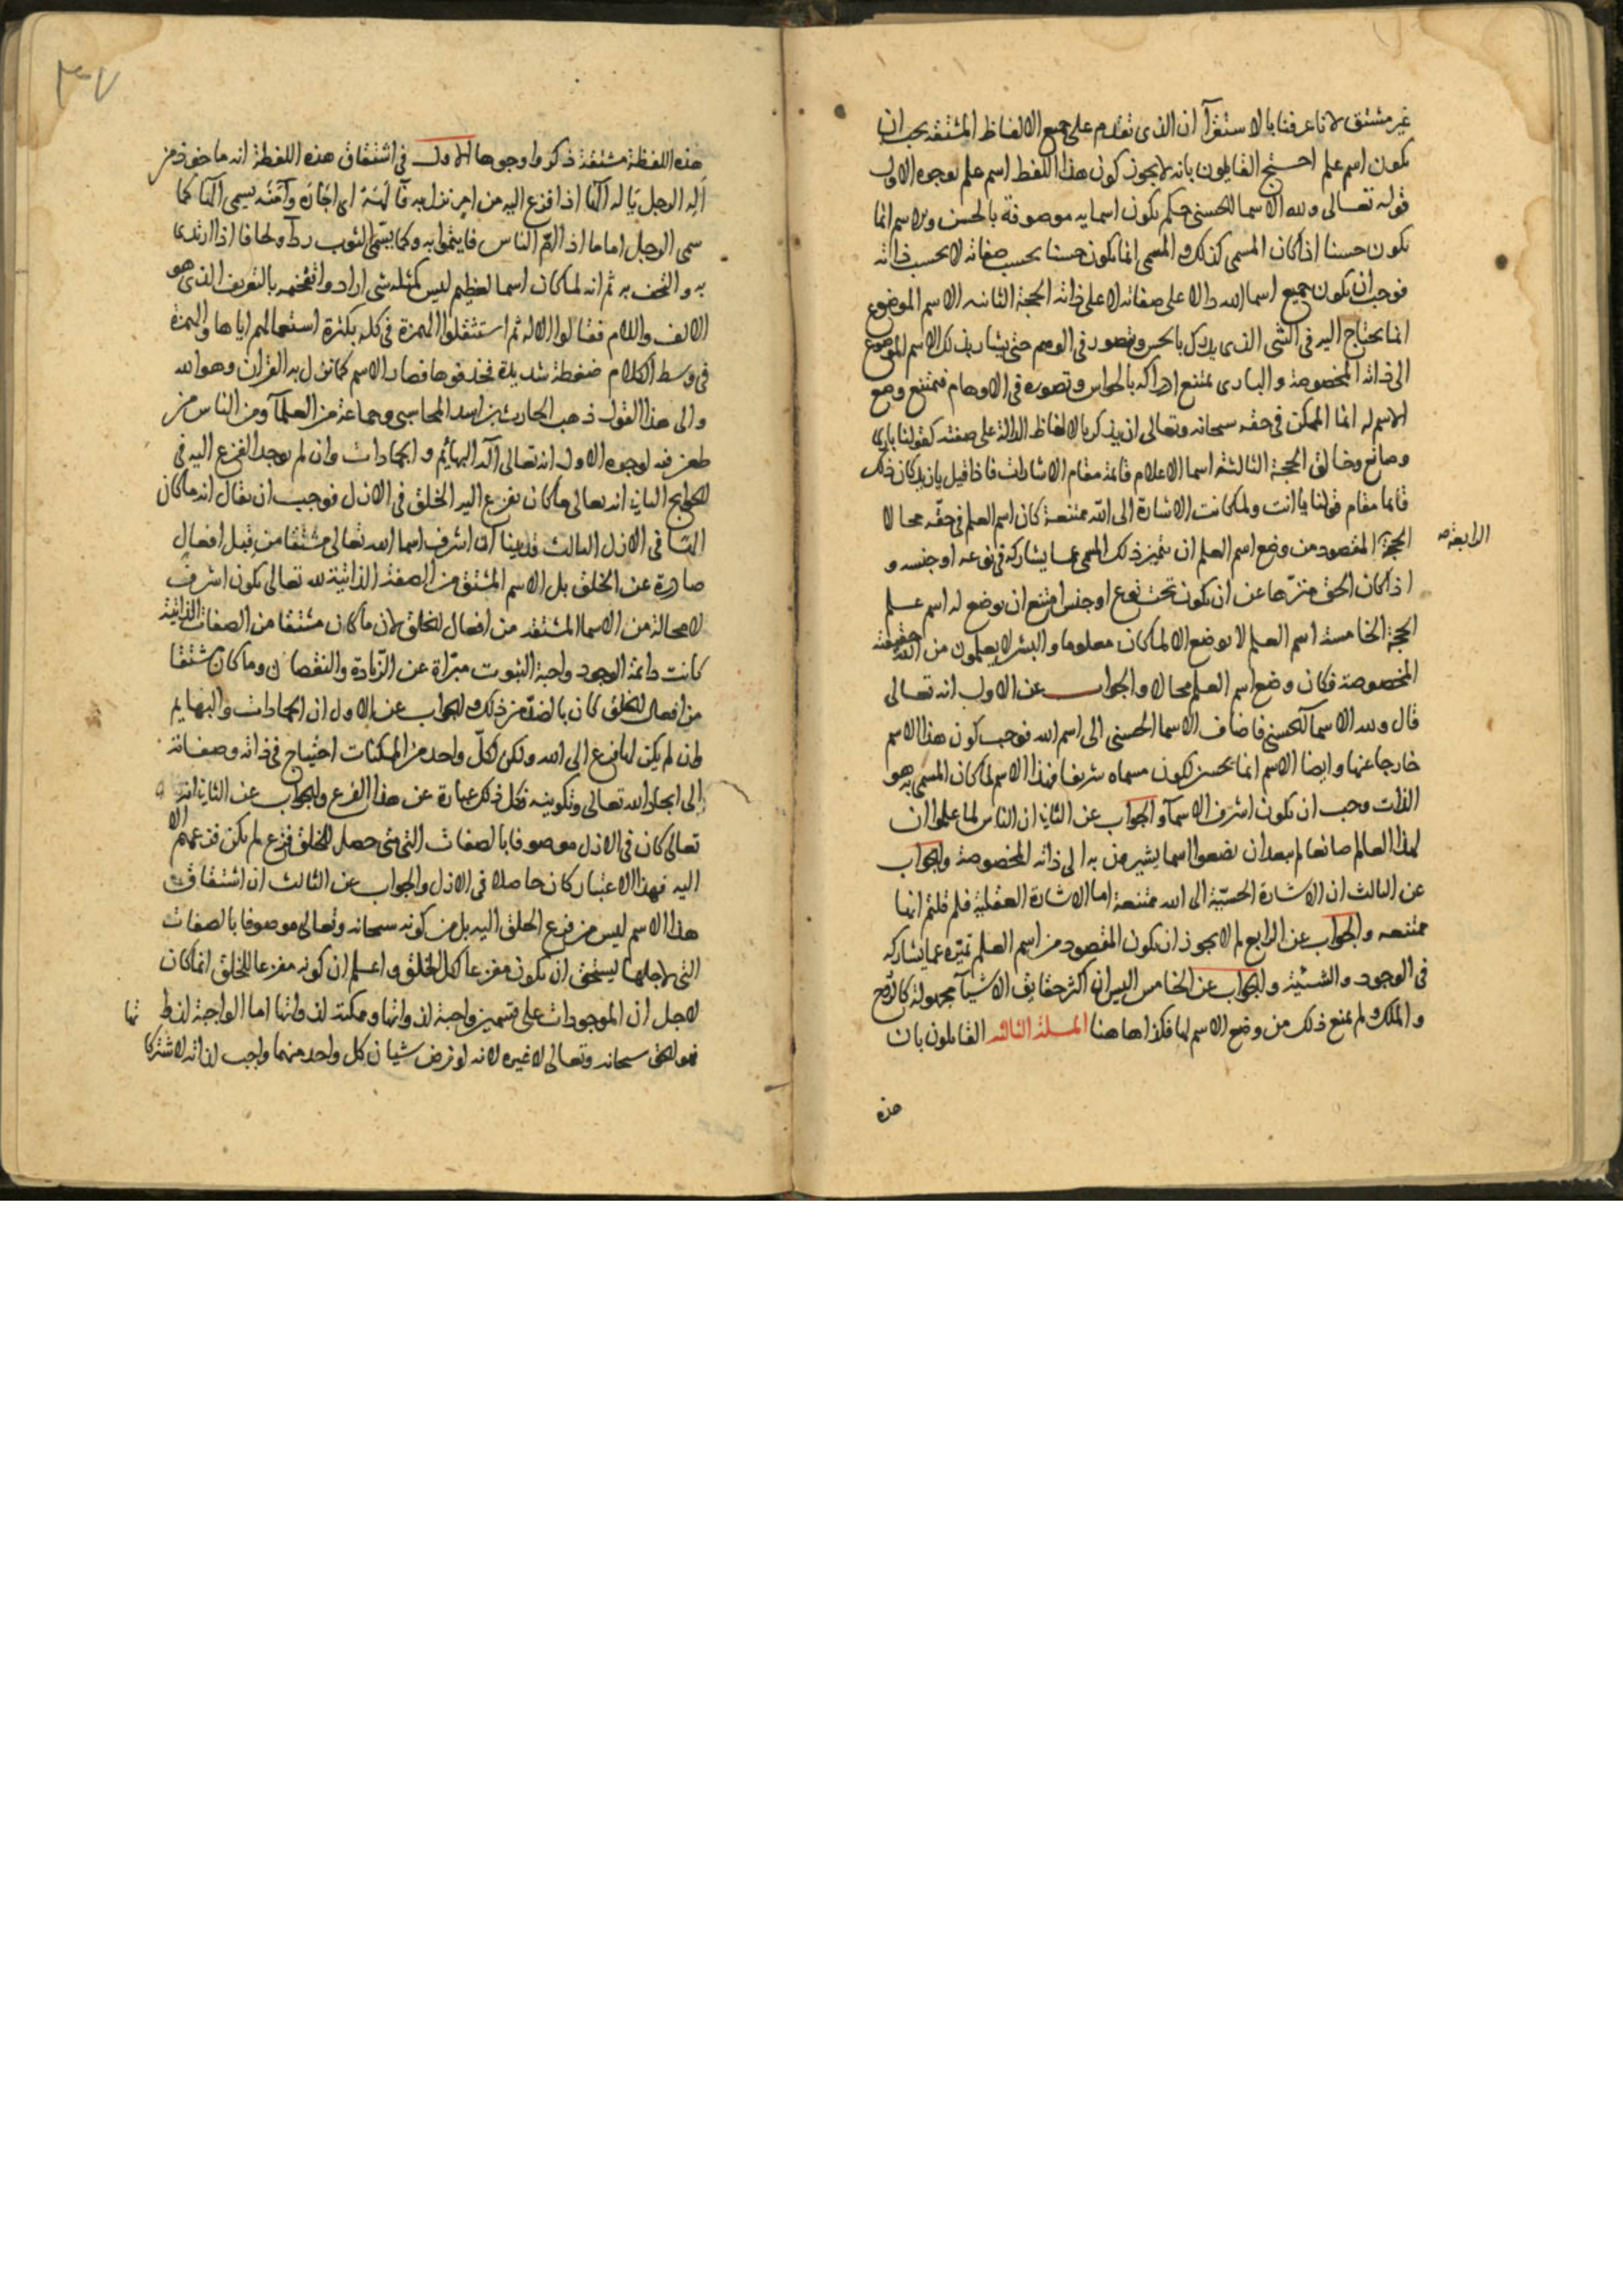 غير مشتق لانا عرفنا بالاستقرآ ان الذى تقدم على جميع الالفاظ المشتقه يجب ان
يكون اسم علم احتج القايلون بانه لا يجوز كون هذا اللفظ اسم علم بوجوه الاول
قوله تعالى ولله الاسما الحسنى حكم بكون اسمايه موصوفة بالحسن والاسم انما
يكون حسنا اذا كان المسمى كذلك والمسمى انما يكون حسنا بحسب صفاته لا بحسب ذاته
فوجب ان يكون جميع اسما الله دالا على صفاته لا على ذاته الحجة الثانيه الاسم الموضوع
انما يحتاج اليه فى الشى الذى يدرك بالحس ويتصور فى الوهم حتى يشار بذلك الاسم الموضوع
الى ذاته المخصوصة والبارى يمتنع ادراكه بالحواس وتصوره فى الاوهام فيمتنع وضع
الاسم له انما الممكن فى حقه سبحانه وتعالى ان يذكر بالالفاظ الدالة على صفته كقولنا بارى
وصانع وخالق الحجة الثالثة اسما الاعلام قائمة مقام الاشارات فاذا قيل يا زيد كان ذلك
قائما مقام قولنا يا انت ولما كانت الاشارة الى الله ممتنعة كان اسم العلم فى حقه محالا
الحجة الرابعة المقصود من وضع اسم العلم ان يتميز ذلك المسمى عما يشاركه فى نوعه او جنسه و
اذا كان الحق منزها عن ان يكون تحت نوع او جنس امتنع ان يوضع له اسم علم
الحجة الخامسة اسم العلم لا يوضع الا لما كان معلوما والبشر لا يعلمون من الله حقيقته
المخصوصة فكان وضع اسم العلم محالا والجواب عن الاول انه تعالى
قال ولله الاسمآ الحسنى فاضاف الاسما الحسنى الى اسم الله فوجب كون هذا الاسم
خارجا عنها وايضا الاسم انما يحسن لكون مسماه شريفا فهذا الاسم لما كان المسمى به هو
الذات وجب ان يكون اشرف الاسمآ والجواب عن الثانى ان الناس لما علموا ان
لهذا العالم صانعا لم يبعد ان يضعوا اسما يشيرون به الى ذاته المخصوصة والجواب
عن الثالث ان الاشارة الحسّيّة الى الله ممتنعة اما الاشارة العقلية فلم قلتم انها
ممتنعه والجواب عن الرابع لم لا يجوز ان يكون المقصود من اسم العلم تميّزه عما يشاركه
فى الوجود والشيئية والجواب عن الخامس اليس ان اكثر حقايق الاشيآ مجهولة كالروح
والملك ولم يمنع ذلك من وضع الاسم لها فكذا هاهنا المسلة الثالثه القايلون بان
هذه
٣٧
هذه اللفظة مشتقة ذكروا وجوها الاول فى اشتقاق هذه اللفظة انه ماخوذ من
اله الرجل ياله الها اذا فزع اليه من امر نزل به فآلهه اى اجاره وآمنه يسمى الها كما
سمى الرجل اماما اذا امّ الناس فايتموا به وكما يسمى الثوب ردآ ولحافا اذا ارتدى
به والتحف به ثم انه لما كان اسما لعظيم ليس كمثله شى ارادوا تفخيمه بالتعريف الذى هو
الالف واللام فقالوا الاله ثم استثقلوا الهمزة فى كلمة بكثرة استعمالهم اياها والهمزة
فى وسط الكلام ضغطة شديدة فحذفوها فصار الاسم كما نزل به القران وهو الله
والى هذا القول ذهب الحارث بن اسد المحاسبى وجماعة من العلمآ ومن الناس من
طعن فيه لوجوه الاول انه تعالى اله البهائم والجمادات وان لم يوجد الفزع اليه فى
الحوايج الثانى انه تعالى ما كان يفزع اليه الخلق فى الازل فوجب ان يقال انه ما كان
الهًا فى الازل الثالث قد بينا ان اشرف اسما الله تعالى مشتقا من قبل افعال
صادرة عن الخلق بل الاسم المشتق من الصفة الذاتية لله تعالى يكون اشرف
لا محالة من الاسما المشتقه من افعال الخلق لان ما كان مشتقا من الصفات الذاتية
كانت دائمة الوجود واجبة الثبوت مبرّاة عن الزّيادة والنقصان وما كان مشتقا
من افعال الخلق كان بالضدّ من ذلك والجواب عن الاول ان الجمادات والبهايم
وان لم يكن لها فزع الى الله ولكن لكلّ واحد من الممكنات احتياج فى ذاته وصفاته
الى ايجاد الله تعالى وتكوينه فكل ذلك عبارة عن هذا الفزع والجواب عن الثانى انه
تعالى كان فى الازل موصوفا بالصفات التى متى حصل للخلق فزع لم يكن فزعهم الا
اليه فهذا الاعتبار كان حاصلا فى الازل والجواب عن الثالث ان اشتقاق
هذا الاسم ليس من فزع الخلق اليه بل من كونه سبحانه وتعالى موصوفا بالصفات
التى لاجلها يستحق ان يكون مفزعا لكل الخلق واعلم ان كونه مفزعا للخلق انما كان
لاجل ان الموجودات على قسمين واجبة لذواتها وممكنة لذواتها اما الواجبة لذاتها
فهو الحق سبحانه وتعالى لا غيره لانه لو فرض شيان كل واحد منهما واجب لذاته لاشتركا